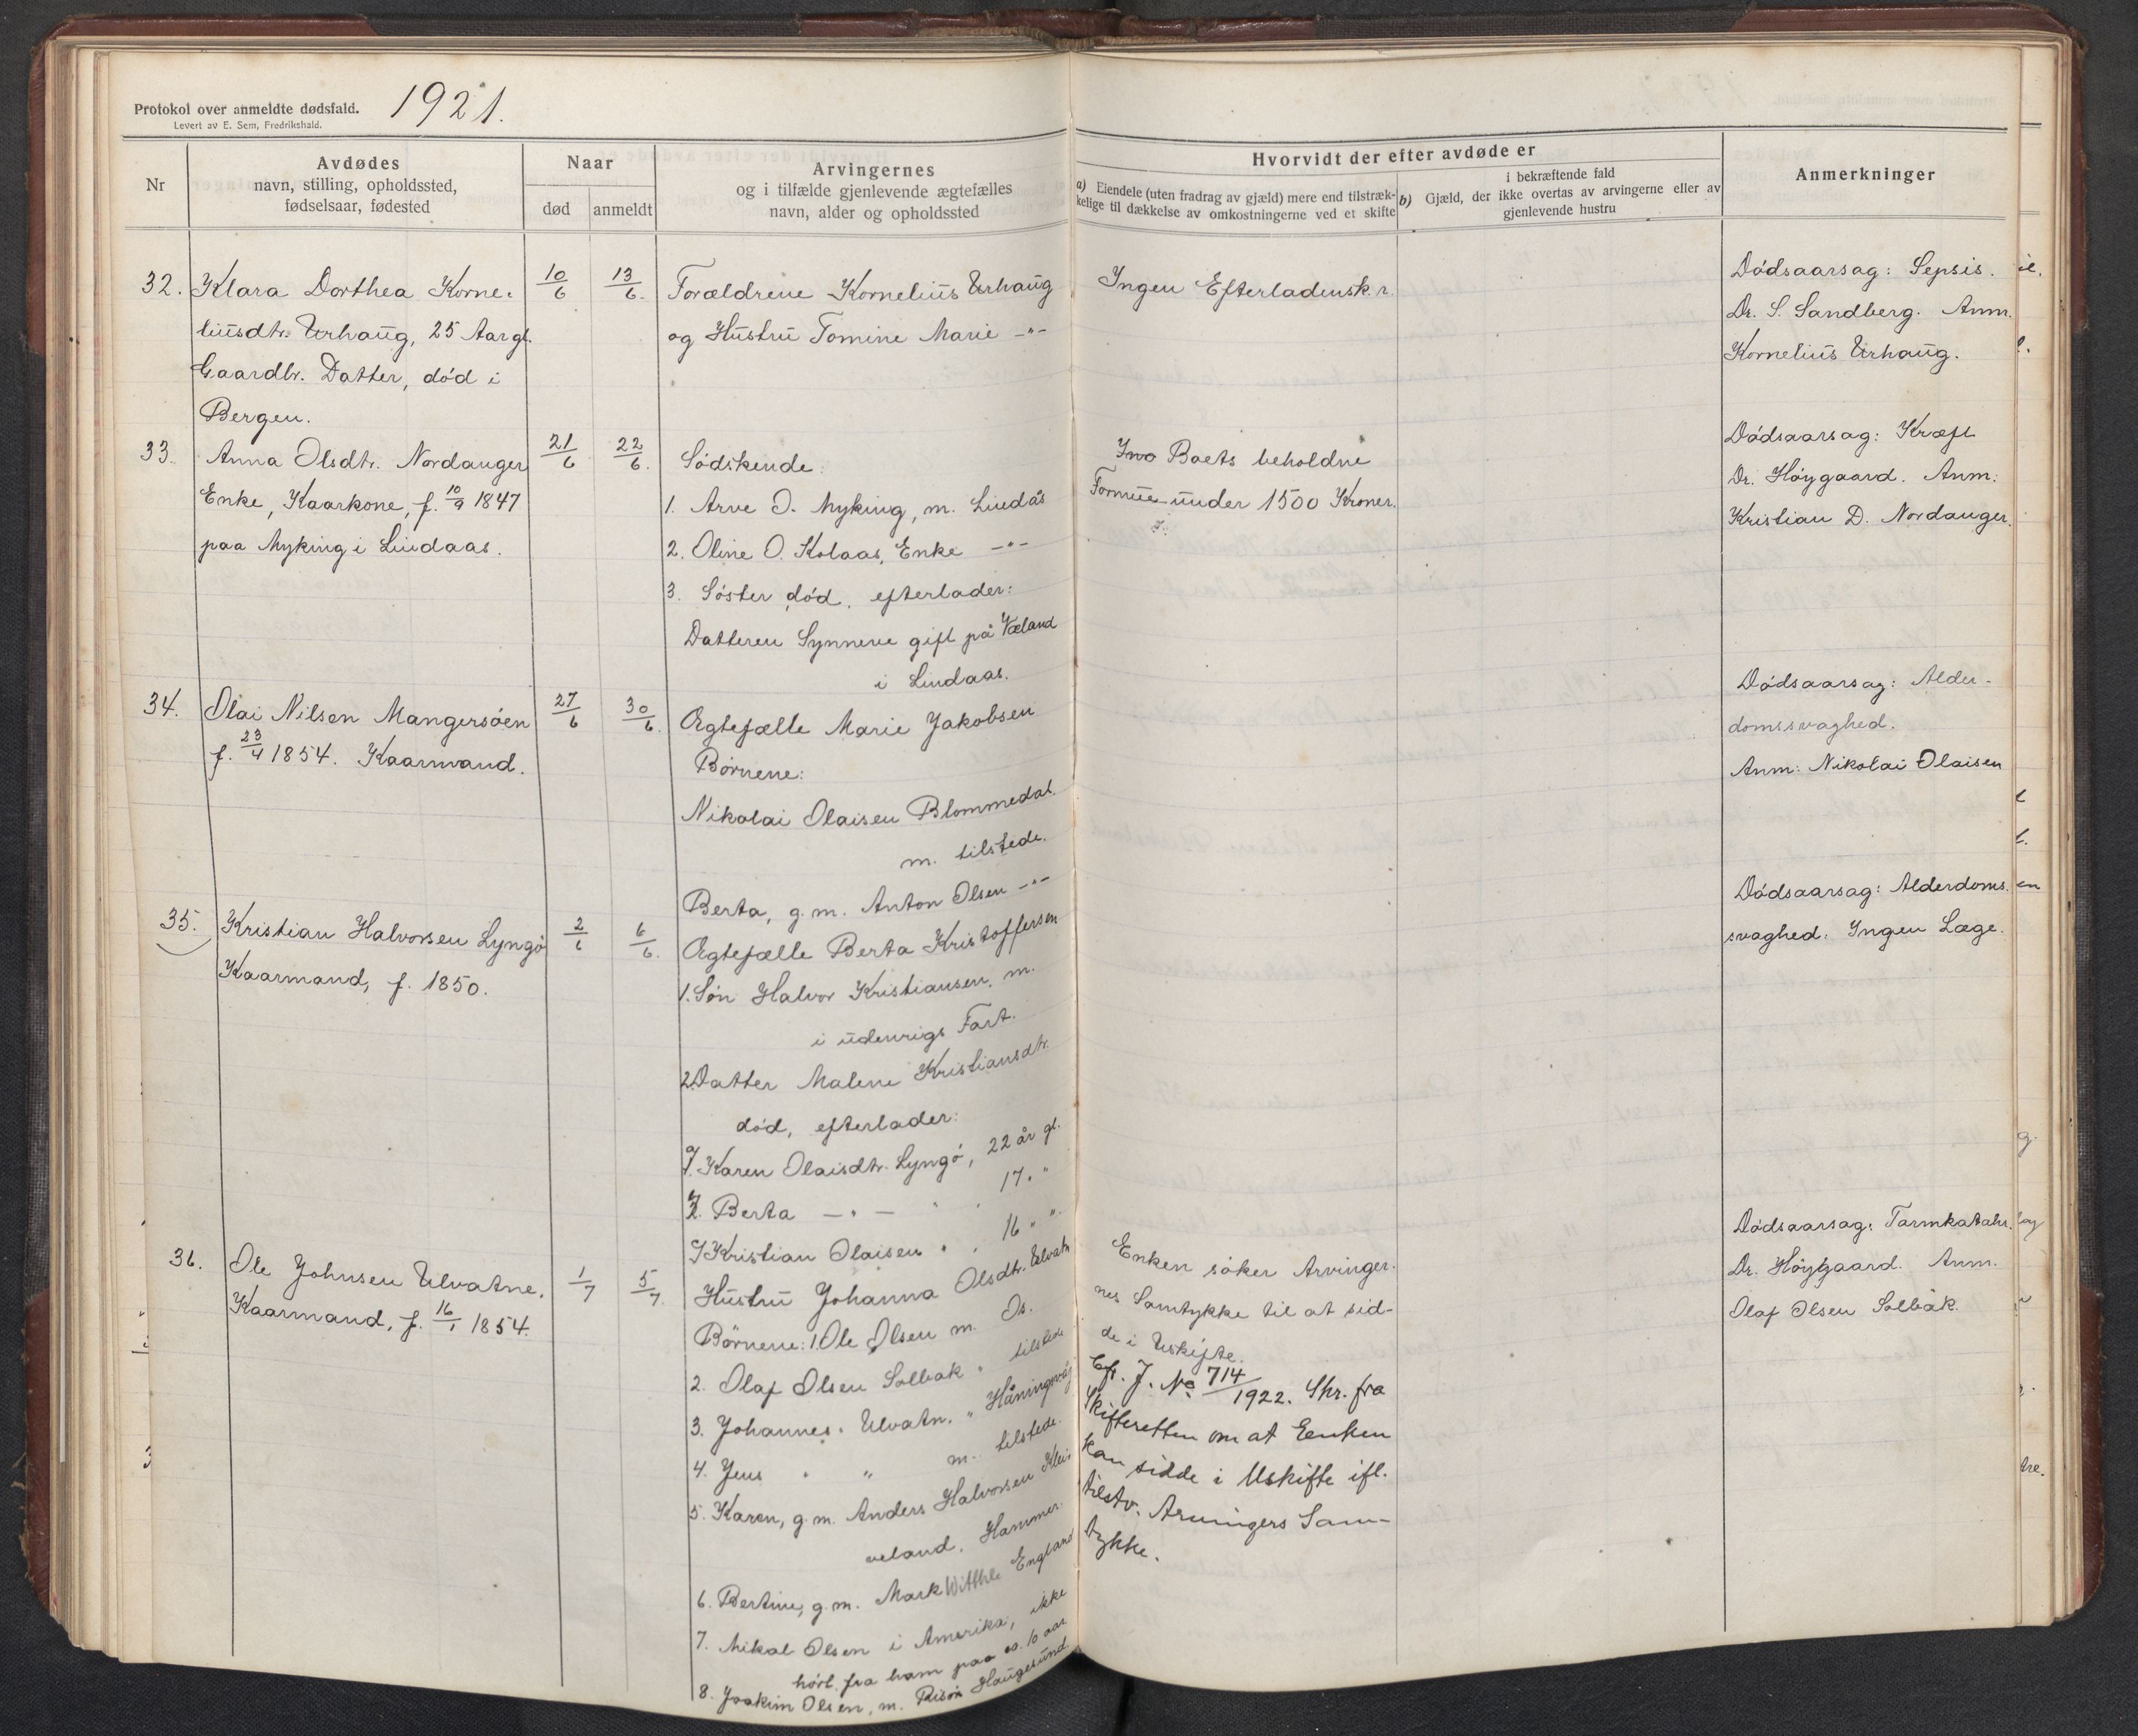 Protokol over anmeldte dødsfald. 1921.
Levert av E. Sem, Fredrikshald.
Nr
Avdødes
navn, stilling, opholdssted,
fødselsaar, fødested
Naar
død
anmeldt
Arvingernes
og i tilfælde gjenlevende ægtefælles
navn, alder og opholdssted
Hvorvidt der efter avdøde er
a) Eiendele (uten fradrag av gjæld) mere end tilstræk-
kelige til dækkelse av omkostningerne ved et skifte
i bekræftende fald
b) Gjæld, der ikke overtas av arvingerne eller av
gjenlevende hustru
Anmerkninger
32. Klara Dorthea Korne-
liusdtr. Urhaug, 25 Aar gl.
Gaardbr. Datter, død i
Bergen.
10/6
13/6.
Forældrene Kornelius Urhaug
og Hustru Tomine Marie —"—
Ingen Efterladensk.r.
Dødsaarsag: Sepsis.
Dr. S. Sandberg. Anm.
Kornelius Urhaug.
33. Anna Olsdtr. Nordanger
Enke, Kaarkone, f. 10/9 1847
paa Myking i Lindaas.
21/6
22/6.
Södskende:
1. Arve O. Myking, m. Lindås
2. Oline O. Kolaas, Enke —"—
3. Söster död, efterlader:
Datteren Synneve gift på Væland
i Lindaas.
Boets beholdne
Formue under 1500 Kroner.
Dødsaarsag: Kræft
Dr. Høygaard. Anm:
Kristian D. Nordanger.
34. Olai Nilsen Mangersöen
f. 23/4 1854. Kaarmand.
27/6
30/6.
Ægtefælle Marie Jakobsen
Börnene:
Nikolai Olaisen Blommedal.
m. tilstede.
Berta, g.m. Anton Olsen —"—
Dødsaarsag: Alder-
domssvaghed.
Anm: Nikolai Olaisen
35. Kristian Halvorsen Lyngö
Kaarmand, f. 1850.
2/6
6/6.
Ægtefælle Berta Kristoffersen
1. Sön Halvor Kristiansen, m.
i udenrigs Fart.
2. Datter Malene Kristiansdtr.
död, efterlader:
Karen Olaisdtr. Lyngö, 22 år gl.
Berta —"— 17 "
Kristian Olaisen " " 16 " "
Dødsaarsag: Alderdoms.
svaghed. Ingen Læge.
36. Ole Johnsen Ulvatne,
Kaarmand, f. 16/1 1854.
1/7
5/7.
Hustru Johanna Olsdtr. Ulvatn
Börnene: 1. Ole Olsen m. Os.
2. Olaf Olsen Solbak " tilstede
3. Johannes. Ulvatn. " Håningsvåg
4. Jens " " m. tilstede.
5. Karen, g.m. Anders Halvorsen Klei-
veland, Hammer.
6. Bertine, g.m. Mark England
7. Mikal Olsen i Amerika, ikke
hört fra ham paa ca. 10 aar
8. Joakim Olsen, m. Risön Haugesund.
Enken söker Arvinger-
nes Samtykke til at sid-
de i Uskifte.
Cfr. J. No 714/1922. Skr. fra
Skifteretten om at Enken
kan sidde i Uskifte ifl.
tilstv. Arvingers Sam-
tykke.
Dødsaarsag: Tarmkatahr.
Dr. Høygaard. Anm.
Olaf Olsen Solbak.